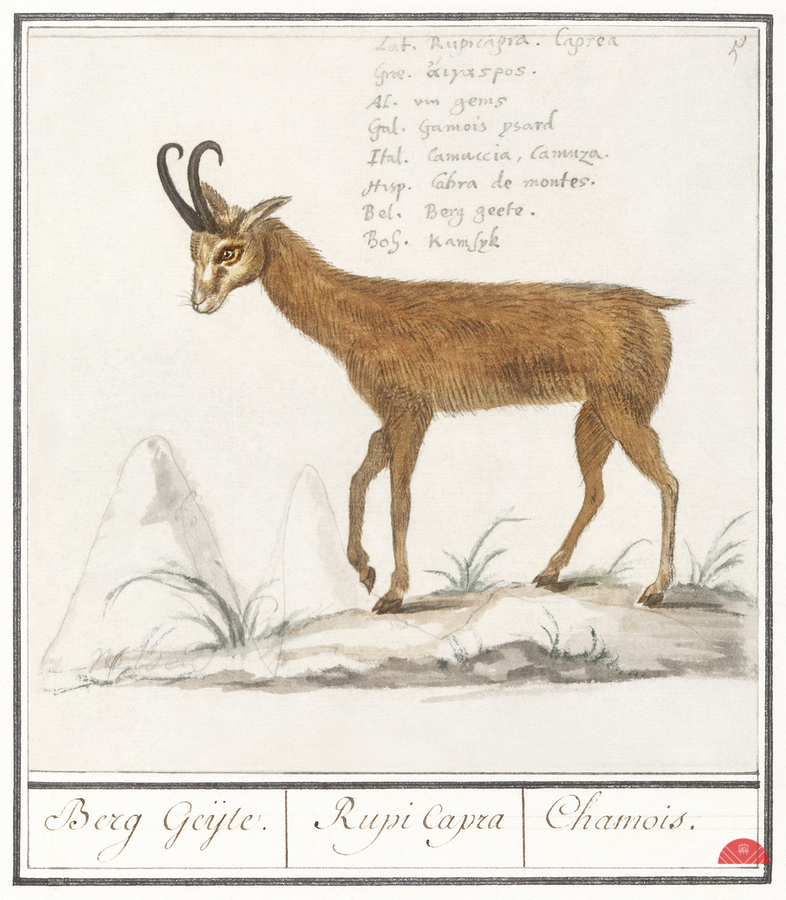 Lat. Rupicapra. Caprea
5
Græ. ἄιγασρος.
Al. vin gems
Gal. Gamois ysard
Ital. Camuccia, Camuza.
Hisp. Cabra de montes.
Bel. Berg geete.
Boh. Kamsyk
Berg Geÿte.
Rupi Capra
Chamois.